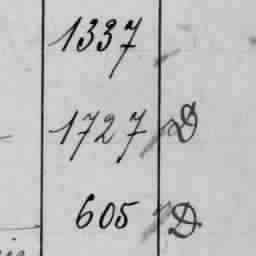 1337
1727 D
605 D